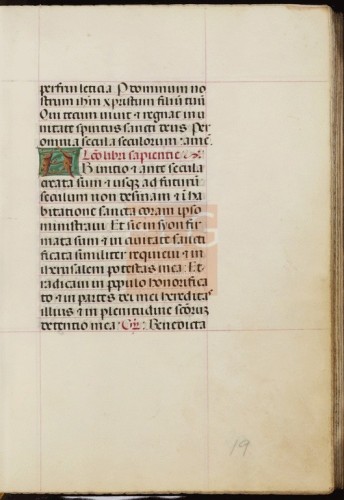 perfrui leticia P dominum no
strum ihm xpristum filiu tuu
Qui tecum viuit et regnat in u
nitate spiritus sancti deus Per
omnia secula seculorum amē.
Lco libri sapientie
AB initio et ante secula
creata sum et usqz ad futuru
seculum non desinam et i ha
bitatione sancta coram ipso
ministraui Et sic in syon fir
mata sum et in ciuitate sancti
ficata similiter requieui et in
iherusalem potestas mea Et
radicaui in populo honorifica
to et in partes dei mei heredita
illius et in plenitudine scōrūz
detentio mea Benedicta
19